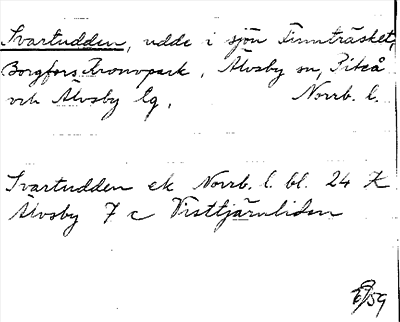 Svartudden, udde i sjön Tinnträsket,
Borgfors Kronopark, Älvsby sn, Piteå
och Älvsby lg, Norrb. l.
Svartudden ek Norrb. l. bl. 24 K
Älvsby 7 c Visttjärnliden
/59